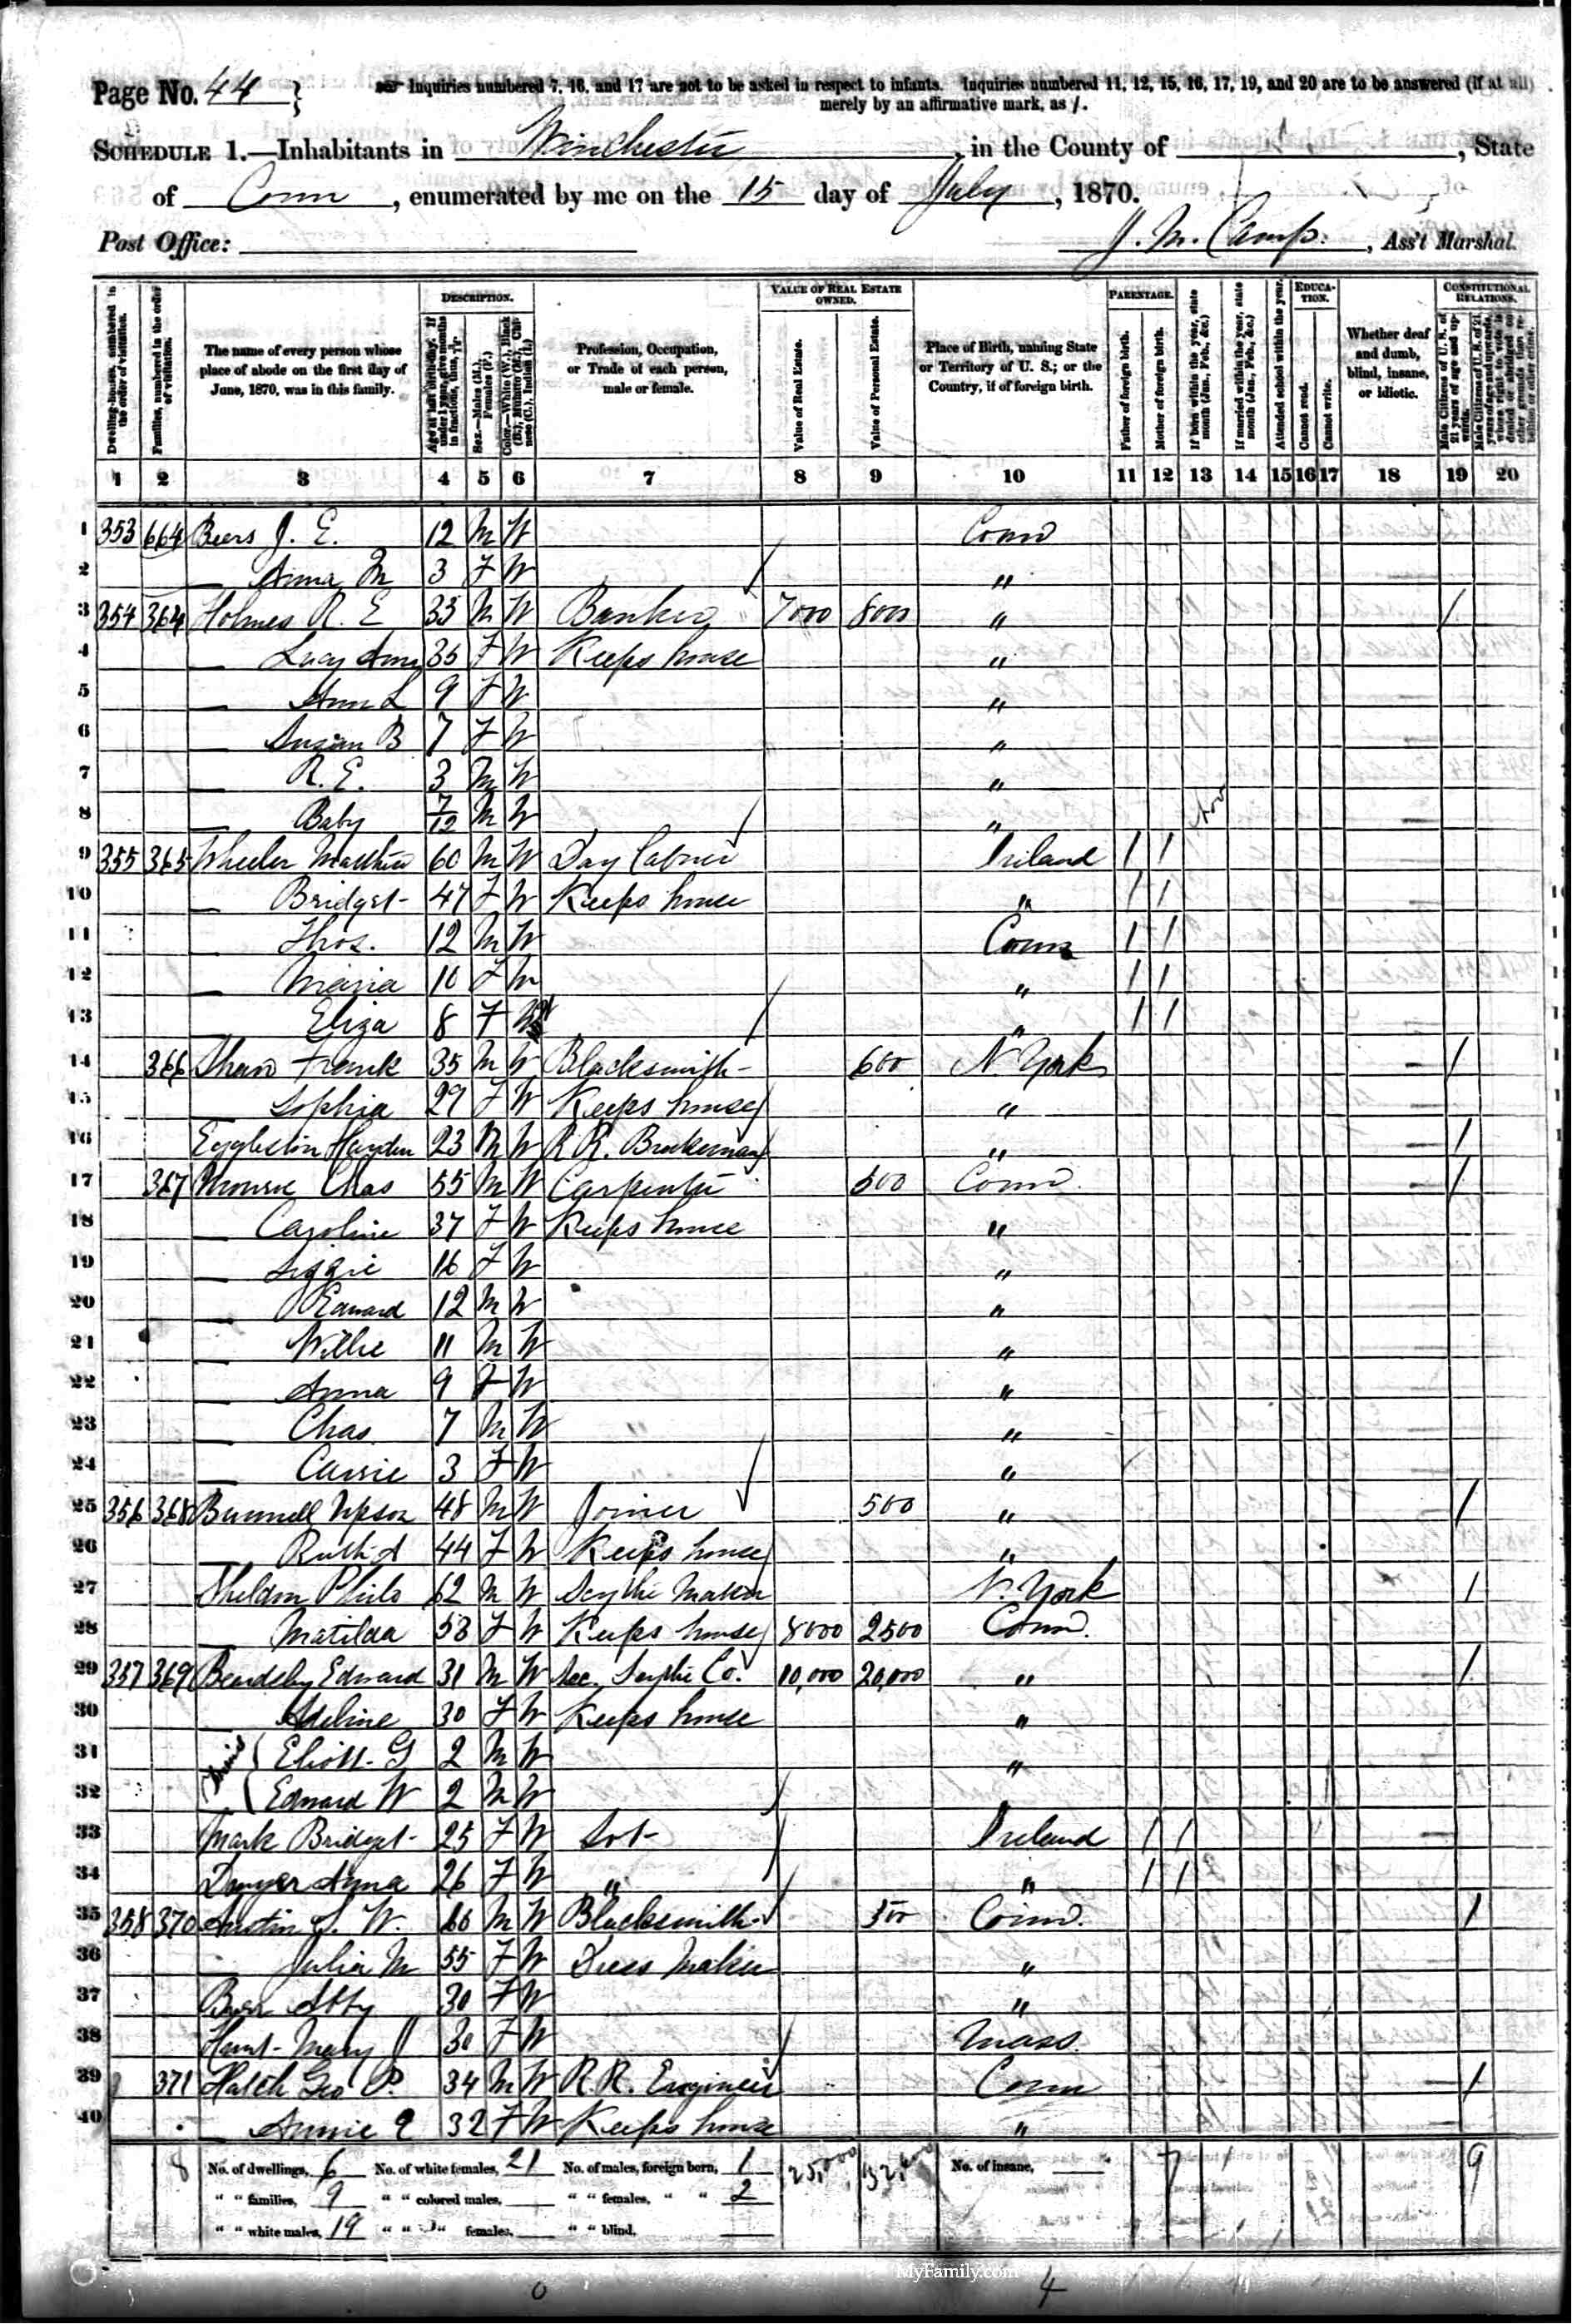 Page No. 44 } Inquiries numbered 7, 16, and 17 are not to be asked in respect to infants. Inquiries numbered 11, 12, 15, 16, 17, 19, and 20 are to be answered (if at all)
merely by an affirmative mark, as /.
SCHEDULE 1.—Inhabitants in Winchester, in the County of , State
of Conn, enumerated by me on the 15 day of July, 1870.
Post Office: J. M. Camp, Ass't Marshal.
Dwelling-houses, numbered in the order of visitation.
Families, numbered in the order of visitation.
The name of every person whose place of abode on the first day of June, 1870, was in this family.
DESCRIPTION.
Age at last birth-day. If under 1 year, give months in fractions, thus, 3/12.
Sex.—Males (M.), Females (F.)
Color.—White (W.), Black (B.), Mulatto (M.), Chinese (C.), Indian (I.)
Profession, Occupation, or Trade of each person, male or female.
VALUE OF REAL ESTATE OWNED.
Value of Real Estate.
Value of Personal Estate.
Place of Birth, naming State or Territory of U. S.; or the Country, if of foreign birth.
PARENTAGE.
Father of foreign birth.
Mother of foreign birth.
If born within the year, state month (Jan., Feb., &c.)
If married within the year, state month (Jan., Feb., &c.)
Attended school within the year.
EDUCATION.
Cannot read.
Cannot write.
Whether deaf and dumb, blind, insane, or idiotic.
CONSTITUTIONAL RELATIONS.
Male Citizens of U. S. of 21 years of age and upwards.
1 2 3 4 5 6 7 8 9 10 11 12 13 14 15 16 17 18 19 20
1 353 664 Beers J. E. 12 M W Conn
2 — Anna M 3 F W "
3 354 364 Holmes R. E 35 M W Banker 7000 8000 " /
4 — Lucy Ann 35 F W Keeps house "
5 — Ann L 9 F W "
6 — Susan B 7 F W "
7 — R. E. 3 M W "
8 — Baby 7/12 M W " Nov
9 355 365 Wheeler Matthew 60 M W Day Laborer Ireland / /
10 — Bridget 47 F W Keeps house " / /
11 — Thos. 12 M W Conn / /
12 — Maria 10 F W " / /
13 Eliza 8 F W " / /
14 366 Shaw Frank 35 M W Blacksmith 600 N. York /
15 — Sophia 29 F W Keeps house "
16 Eggleston Hayden 23 M W R R. Brakeman " /
17 367 Monroe Chas 55 M W Carpenter 500 Conn. /
18 — Caroline 37 F W Keeps house "
19 — Lizzie 16 F W "
20 — Edward 12 M W "
21 — Willie 11 M W "
22 — Anna 9 F W "
23 — Chas. 7 M W "
24 — Carrie 3 F W "
25 356 368 Bunnell Upson 48 M W Joiner 500 " /
26 — Ruth A 44 F W Keeps house "
27 Sheldon Philo 62 M W Scythe Maker N. York /
28 — Matilda 58 F W Keeps house 8000 2500 Conn.
29 357 369 Beardsley Edward 31 M W Sec. Scythe Co. 10,000 20,000 " /
30 — Adeline 30 F W Keeps house "
31 Twins { Eliott G 2 M W "
32 { Edward W 2 M W "
33 Mark Bridget 25 F W Ireland / /
34 Dwyer Anna 26 F W " " / /
35 358 370 Austin S. W. 66 M W Blacksmith 500 Conn. /
36 Julia M 55 F W Dress Maker "
37 Burr Abby 30 F W "
38 Hunt Mary J 30 F W Mass.
39 371 Hatch Geo P. 34 M W R.R. Engineer Conn /
40 — Annie E 32 F W Keeps house "
8 No. of dwellings, 6 No. of white females, 21 No. of males, foreign born, 1 25,000 32,600 No. of insane, 7 9
" " families, 9 " " colored males, " " females, " " 2
" " white males, 19 " " " females, " " blind,
MyFamily.com
0 4